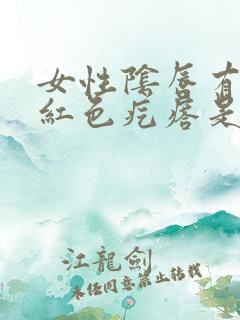 女性陰唇有
紅色疙瘩是
江龍劍
未经同意禁止转载